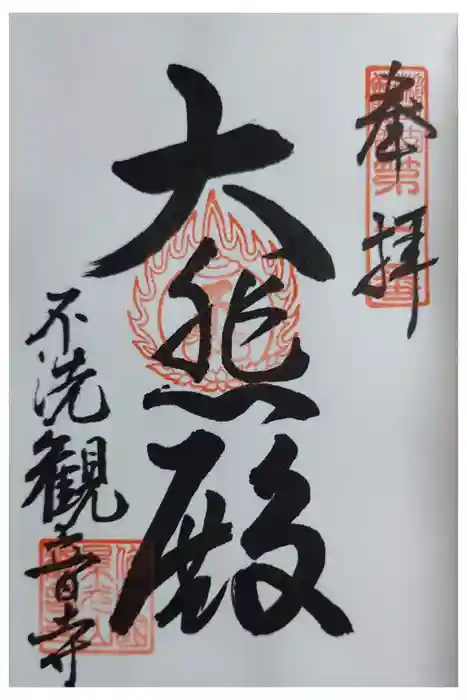 奉拝
大悲殿
不洗観音寺